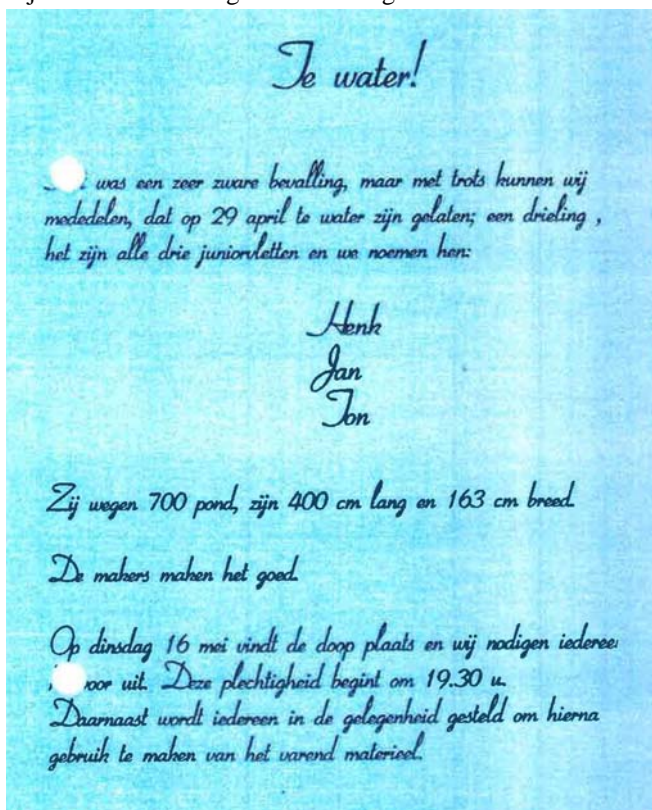 Te water!
was een zeer zware bevalling, maar met trots kunnen wij
mededelen, dat op 29 april te water zijn gelaten; een drieling ,
het zijn alle drie juniorvletten en we noemen hen:
Henk
Jan
Ton
Zij wegen 700 pond, zijn 400 cm lang en 163 cm breed.
De makers maken het goed.
Op dinsdag 16 mei vindt de doop plaats en wij nodigen iederee
voor uit. Deze plechtigheid begint om 19.30 u.
Daarnaast wordt iedereen in de gelegenheid gesteld om hierna
gebruik te maken van het varend materieel.